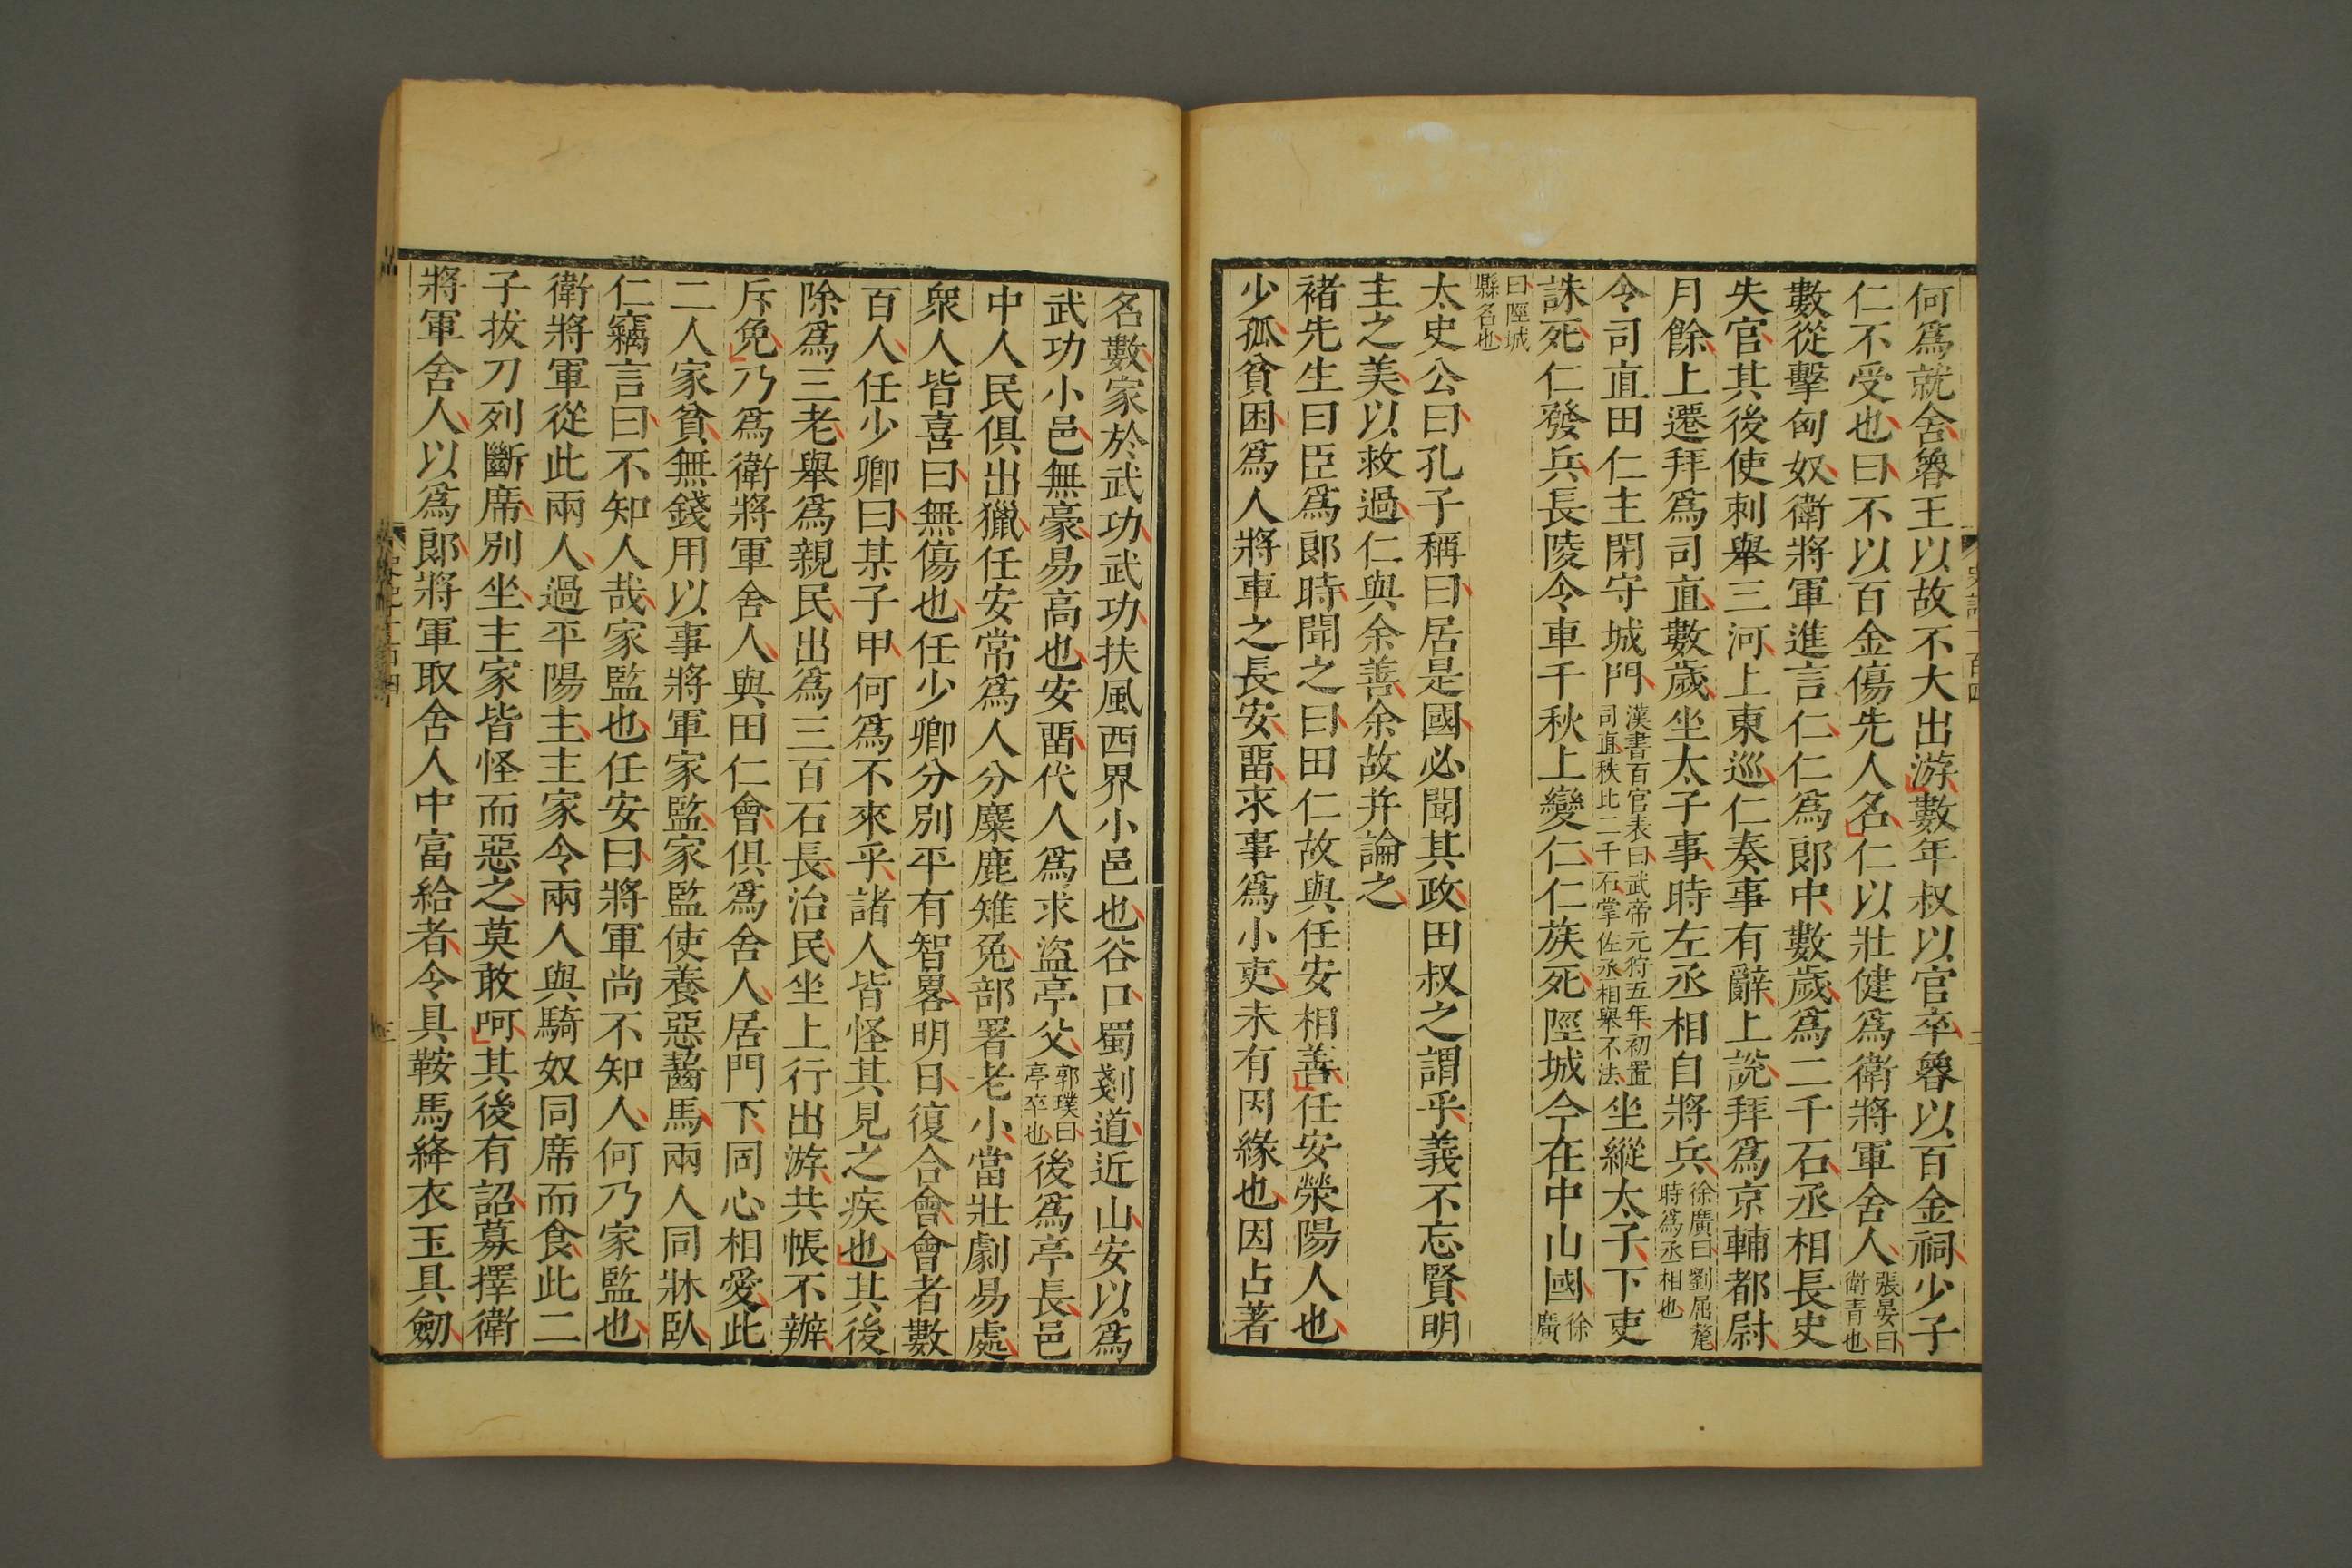 何爲就舍魯王以故不大出游數年叔以官卒魯以百金祠少子
仁不受也曰不以百金傷先人名仁以壯健爲衛將軍舍人張晏曰衛青也
數從擊匈奴衛將軍進言仁仁爲郎中數歲爲二千石丞相長史
失官其後使刺舉三河上東巡仁奏事有辭上說拜爲京輔都尉
月餘上遷拜爲司直數歲坐太子事時左丞相自將兵徐廣曰劉屈氂時爲丞相也
令司直田仁主閉守城門漢書百官表曰武帝元狩五年初置司直秩比二千石掌佐丞相舉不法坐縱太子下吏
誅死仁發兵長陵令車千秋上變仁仁族死陘城今在中山國徐廣
曰陘城縣名也
太史公曰孔子稱曰居是國必聞其政田叔之謂乎義不忘賢明
主之美以救過仁與余善余故幷論之
褚先生曰臣爲郎時聞之曰田仁故與任安相善任安滎陽人也
少孤貧困爲人將車之長安畱求事爲小吏未有因緣也因占著
名數家於武功武功扶風西界小邑也谷口蜀剗道近山安以爲
武功小邑無豪易高也安畱代人爲求盜亭父郭璞曰亭卒也後爲亭長邑
中人民俱出獵任安常爲人分麋鹿雉兔部署老小當壯劇易處
衆人皆喜曰無傷也任少卿分別平有智畧明日復合會會者數
百人任少卿曰某子甲何爲不來乎諸人皆怪其見之疾也其後
除爲三老舉爲親民出爲三百石長治民坐上行出游共帳不辦
斥免乃爲衛將軍舍人與田仁會俱爲舍人居門下同心相愛此
二人家貧無錢用以事將軍家監家監使養惡齧馬兩人同牀臥
仁竊言曰不知人哉家監也任安曰將軍尚不知人何乃家監也
衛將軍從此兩人過平陽主主家令兩人與騎奴同席而食此二
子拔刀列斷席別坐主家皆怪而惡之莫敢呵其後有詔募擇衛
將軍舍人以爲郎將軍取舍人中富給者令具鞍馬絳衣玉具劒